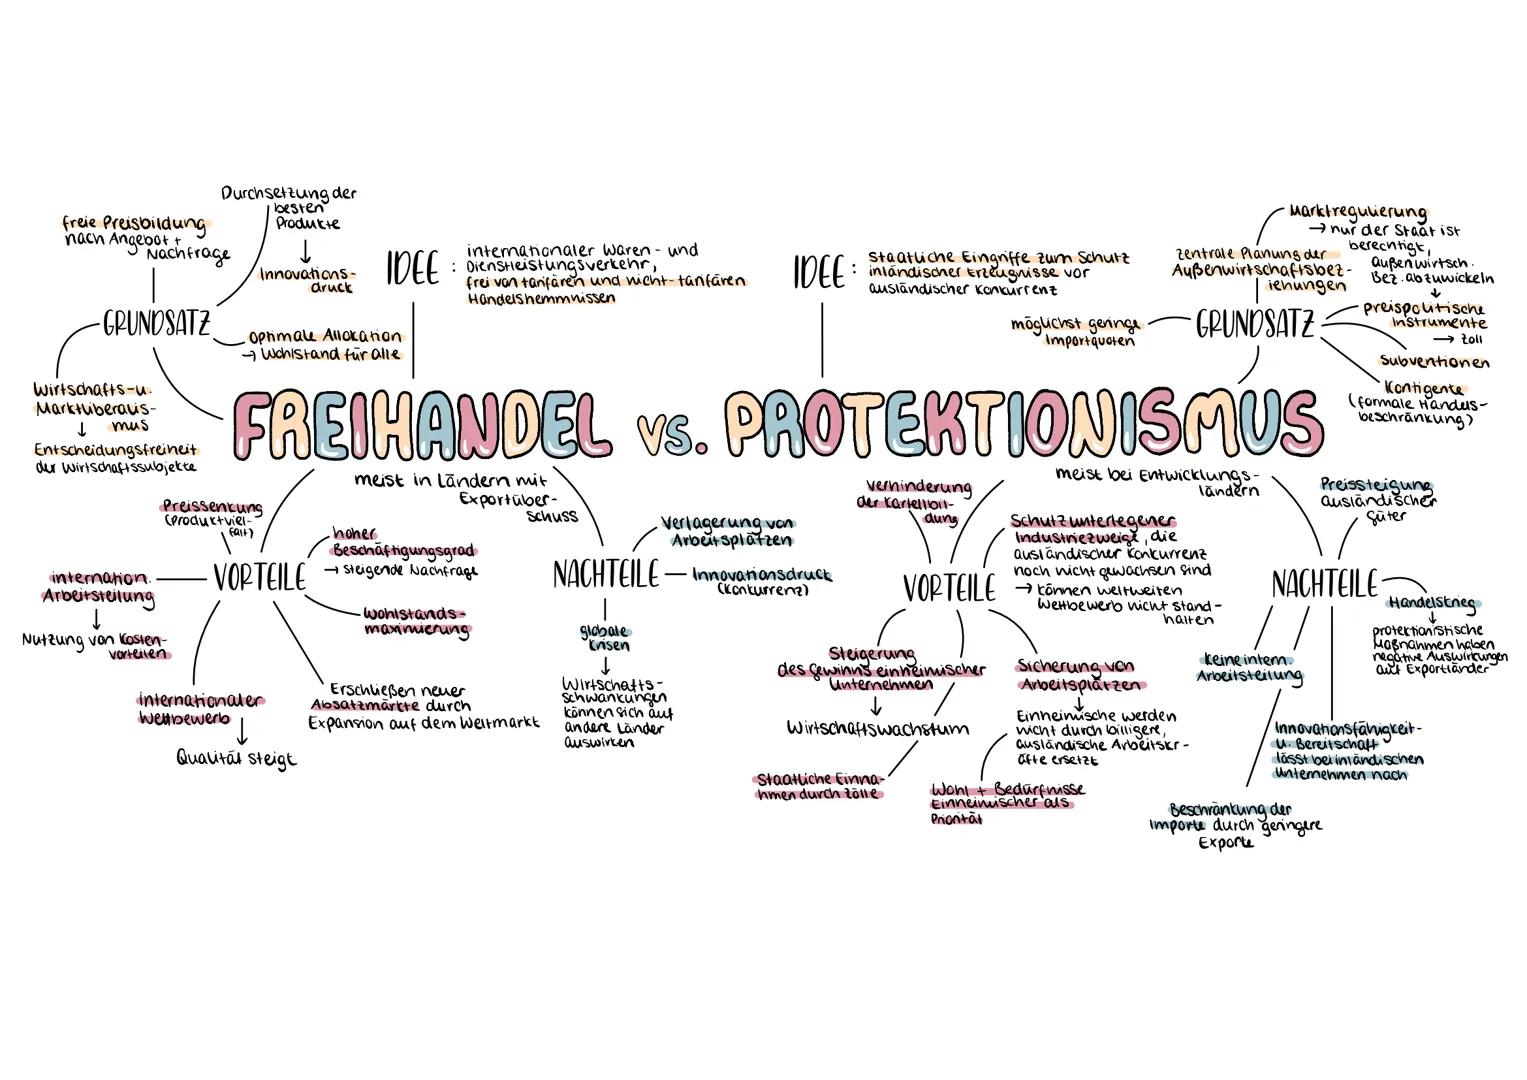 FREIHANDEL vs. PROTEKTIONISMUS
IDEE :
internationaler Waren- und
Dienstleistungsverkehr,
frei von tarifären und nicht-tarifären
Handelshemmnissen
GRUNDSATZ
freie Preisbildung
nach Angebot +
Nachfrage
Durchsetzung der
besten
Produkte
↓
Innovations-
druck
optimale Allokation
→ Wohlstand für alle
Wirtschafts-u.
Marktliberalis-
mus
↓
Entscheidungsfreiheit
der Wirtschaftssubjekte
meist in Ländern mit
Exportüber-
schuss
VORTEILE
Preissenkung
(Produktviel-
falt)
hoher
Beschäftigungsgrad
→ steigende Nachfrage
internation.
Arbeitsteilung
↓
Nutzung von Kosten-
vorteilen
Wohlstands-
maximierung
internationaler
Wettbewerb
↓
Qualität steigt
Erschließen neuer
Absatzmärkte durch
Expansion auf dem Weltmarkt
NACHTEILE
Verlagerung von
Arbeitsplätzen
Innovationsdruck
(Konkurrenz)
globale
Krisen
↓
Wirtschafts-
schwankungen
können sich auf
andere Länder
auswirken
IDEE :
staatliche Eingriffe zum Schutz
inländischer Erzeugnisse vor
ausländischer Konkurrenz
GRUNDSATZ
möglichst geringe
Importquoten
zentrale Planung der
Außenwirtschaftsbez-
iehungen
Marktregulierung
→ nur der Staat ist
berechtigt,
außenwirtsch.
Bez. abzuwickeln
↓
preispolitische
Instrumente
→ Zoll
Subventionen
Kontigente
(formale Handels-
beschränkung)
meist bei Entwicklungs-
ländern
VORTEILE
Verhinderung
der Kartellbil-
dung
Schutz unterlegener
Industriezweige, die
ausländischer Konkurrenz
noch nicht gewachsen sind
→ können weltweiten
Wettbewerb nicht stand-
halten
Steigerung
des Gewinns einheimischer
Unternehmen
↓
Wirtschaftswachstum
Sicherung von
Arbeitsplätzen
↓
Einheimische werden
nicht durch billigere,
ausländische Arbeitskr-
äfte ersetzt
Staatliche Einna-
hmen durch Zölle
Wohl + Bedürfnisse
Einheimischer als
Priorität
NACHTEILE
Preissteigung
ausländischer
Güter
Handelskrieg
↓
protektionistische
Maßnahmen haben
negative Auswirkungen
auf Exportländer
keine intern.
Arbeitsteilung
Innovationsfähigkeit-
u. Bereitschaft
lässt bei inländischen
Unternehmen nach
Beschränkung der
Importe durch geringere
Exporte